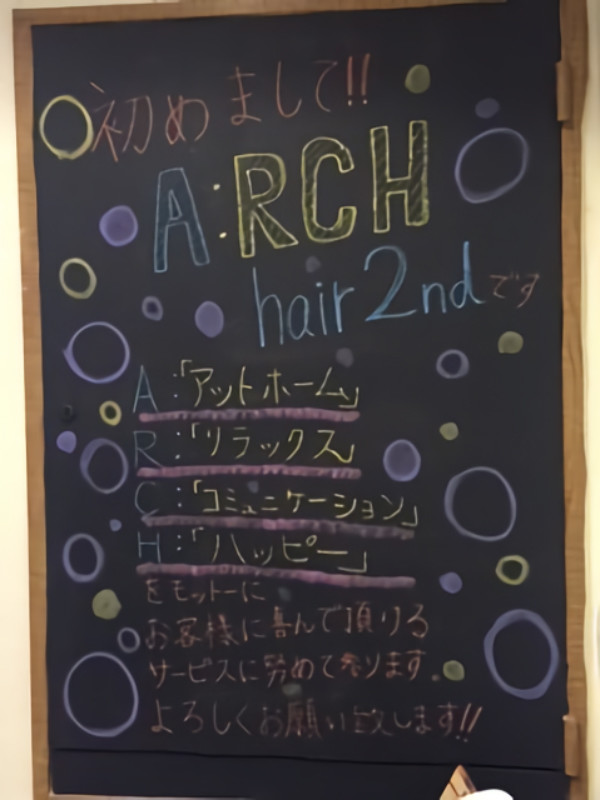 初めまして!!
A:RCH
hair 2nd です
A:「アットホーム」
R:「リラックス」
C:「コミュニケーション」
H:「ハッピー」
をモットーに
お客様に喜んで頂ける
サービスに努めて参ります。
よろしくお願い致します!!